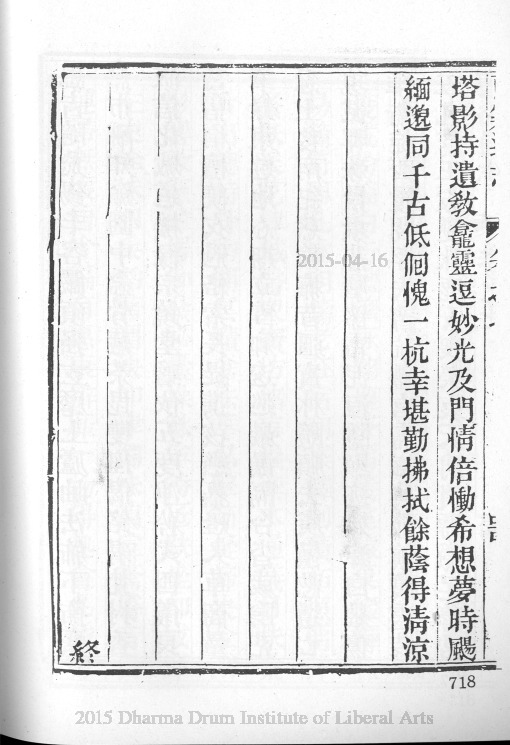 塔影持遺敎龕靈逗妙光及門情倍慟希想夢時颺
緬邈同千古低佪愧一杭幸堪勤拂拭餘蔭得淸涼
終
718
2015-04-16
2015 Dharma Drum Institute of Liberal Arts